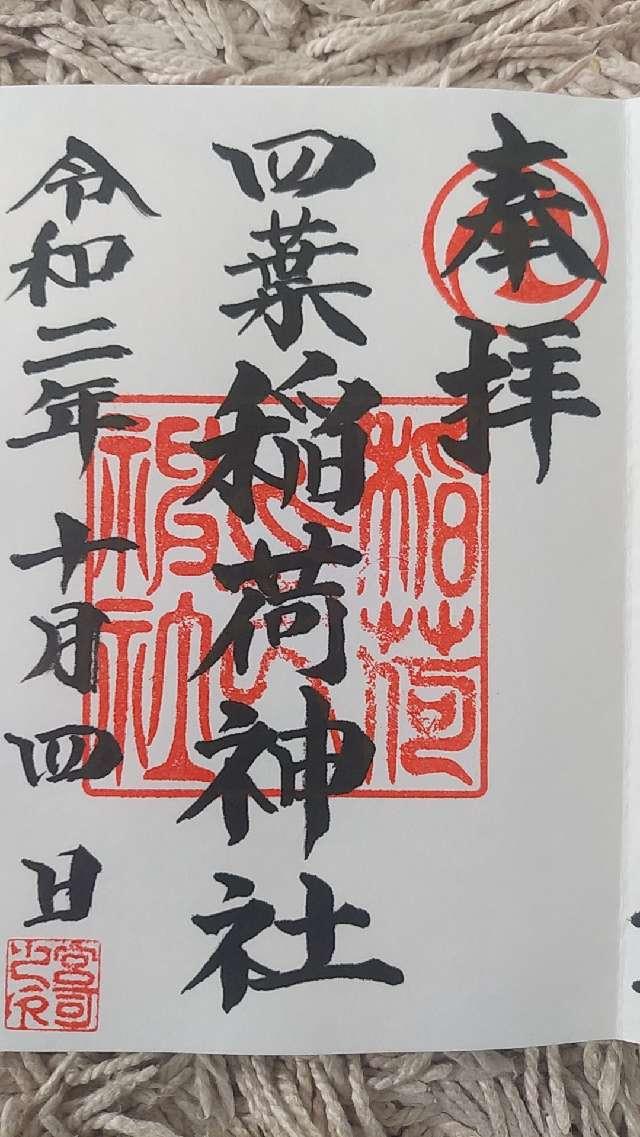 奉拝
四葉稲荷神社
令和二年十月四日
稲荷
神社